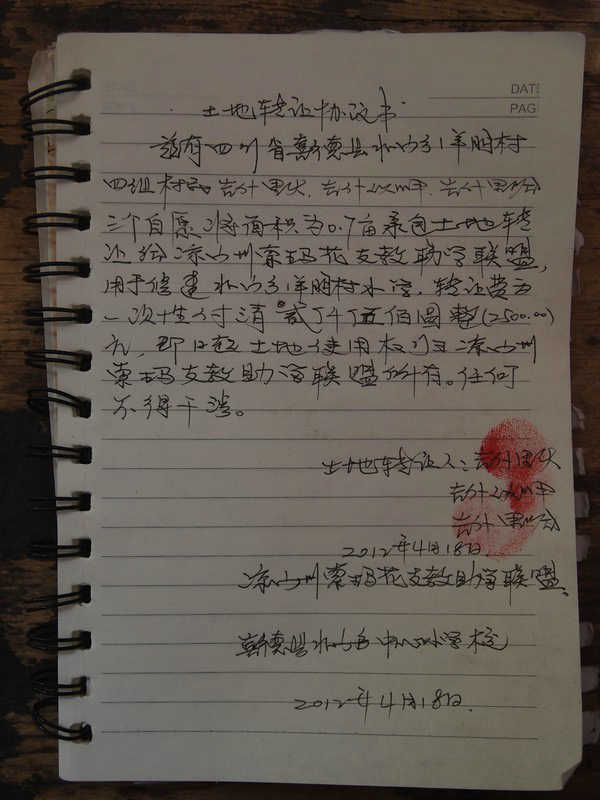 DATE
PAG
土地转让协议书
兹有四川省喜德县水乡羊胆村
四组村民吉什里火、吉什、吉什里
三个自愿将面积为0.7亩承包土地转
让给凉山州索玛花支教助学联盟,
用于修建乡羊胆村小学,转让费为
一次性付清贰仟伍佰圆整(2500.00)
元,即日起土地使用权归凉山州
索玛支教助学联盟所有。任何
不得干涉。
土地转让人:吉什里火
吉什
吉什里
2012年4月18日
凉山州索玛花支教助学联盟
喜德县乡中心小学校
2012年4月18日.